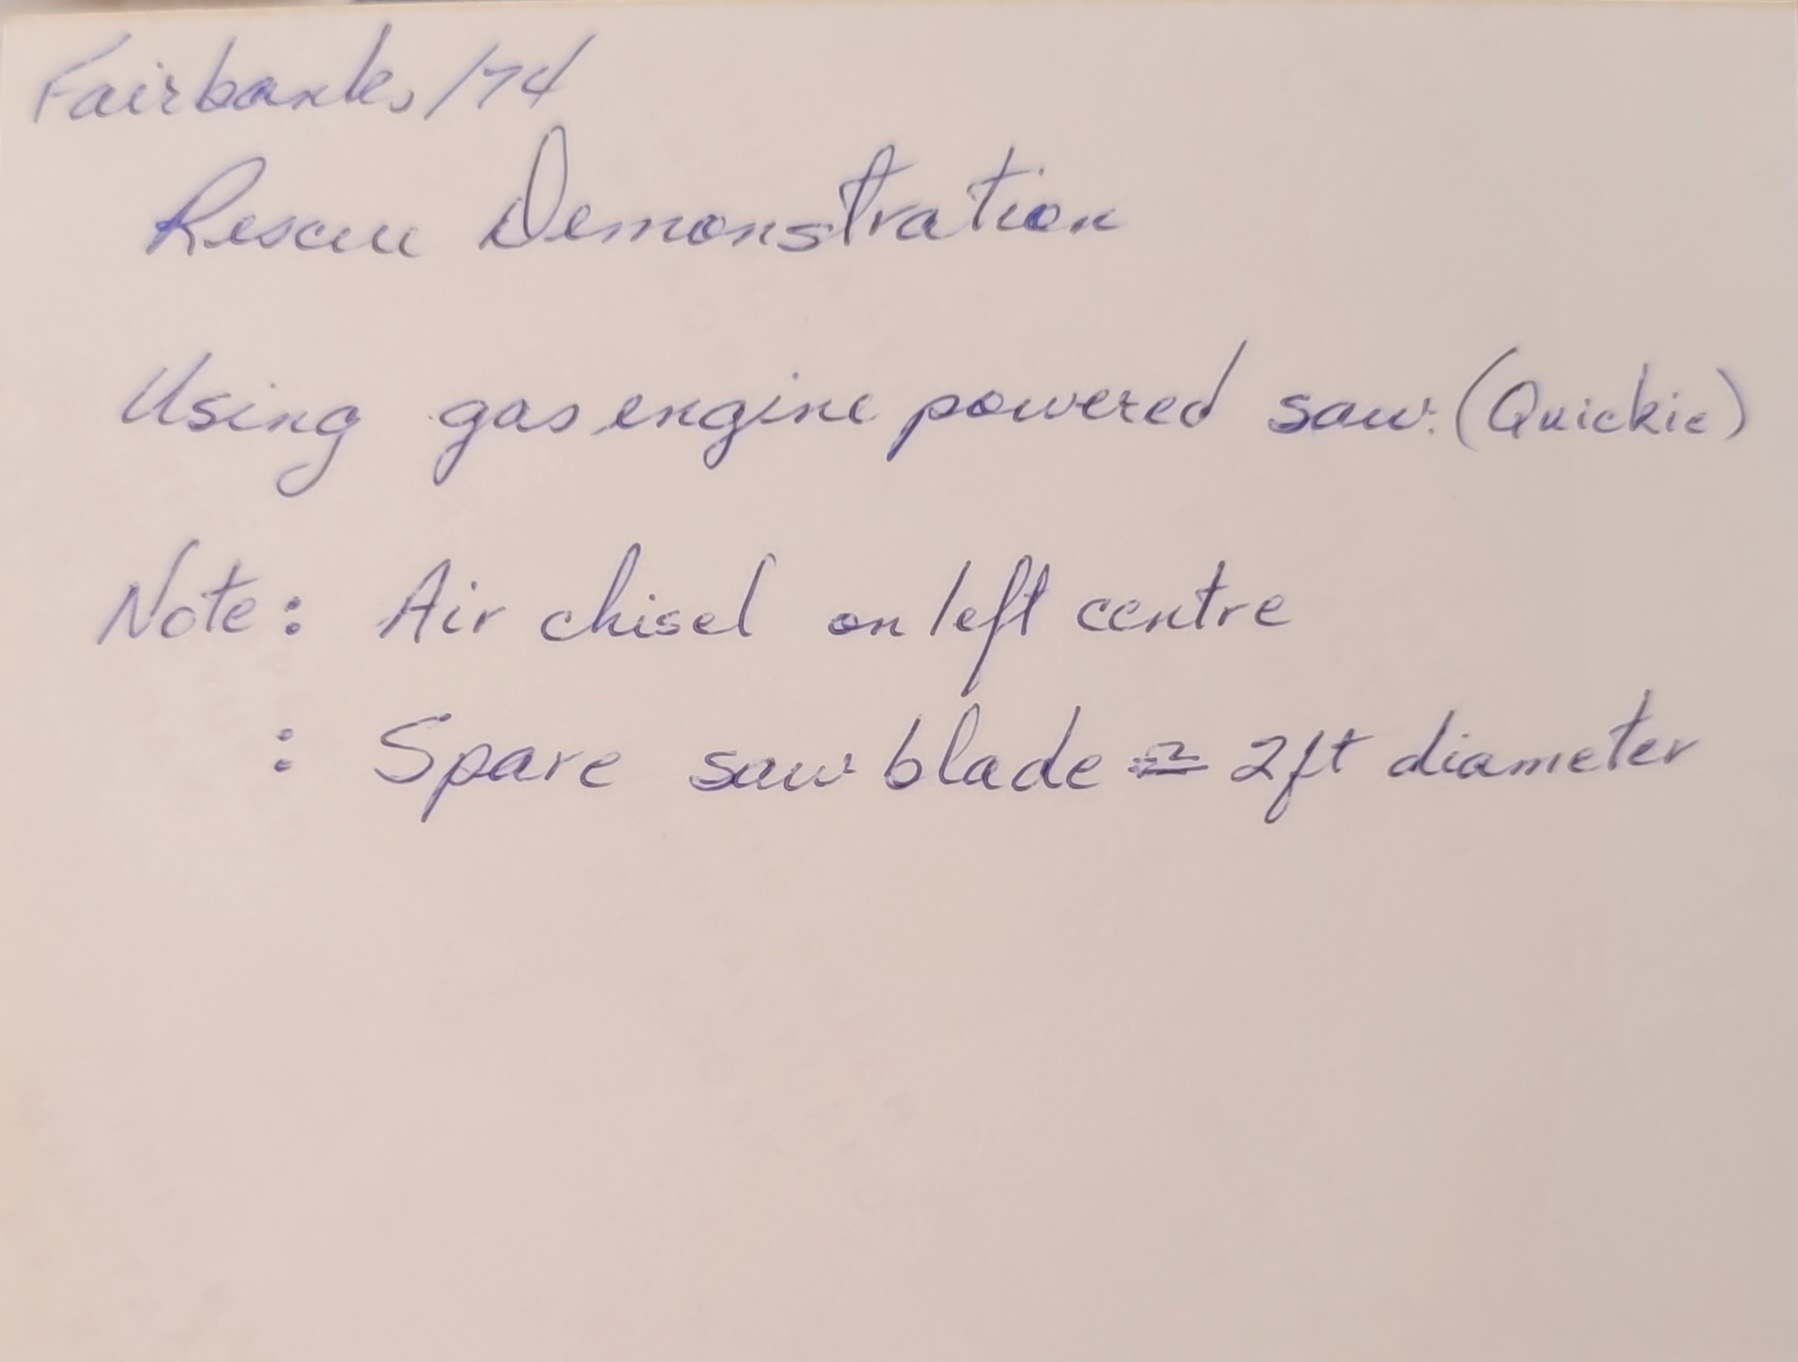 Fairbanks/74
Rescue Demonstration
Using gas engine powered saw. (Quickie)
Note: Air chisel on left centre
: Spare saw blade ≈ 2ft diameter